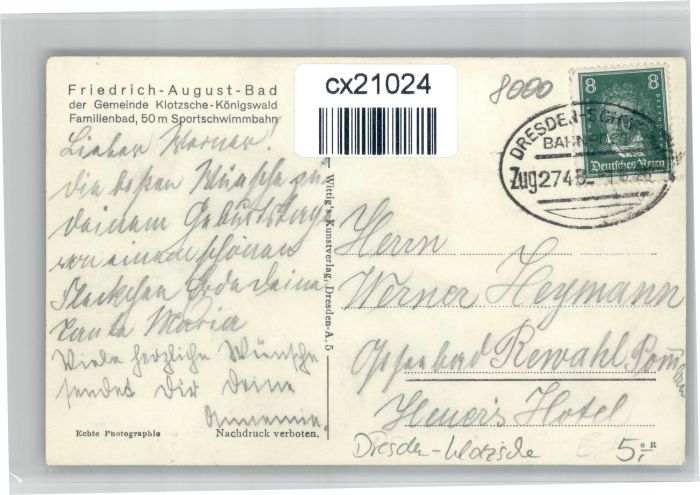 Friedrich-August-Bad
der Gemeinde Klotzsche-Königswald
Familienbad, 50 m Sportschwimmbahn
cx21024
8000
8 8
Deutsches Reich
DRESDEN-
BAHNPOST
Zug 2745
Lieber Werner!
Die besten Wünsche zu
Deinem Geburtstage
von einem schönen
Fleckchen Erde Deine
Tante Maria
Viele herzliche Wünsche
sendet Dir Deine
Annemie.
Wittig's Kunstverlag, Dresden-A. 5
Herrn
Werner Heymann
Ostseebad Rewahl Pom
Hotel
Echte Photographie
Nachdruck verboten.
Dresden-Klotzsche
5,-
e R